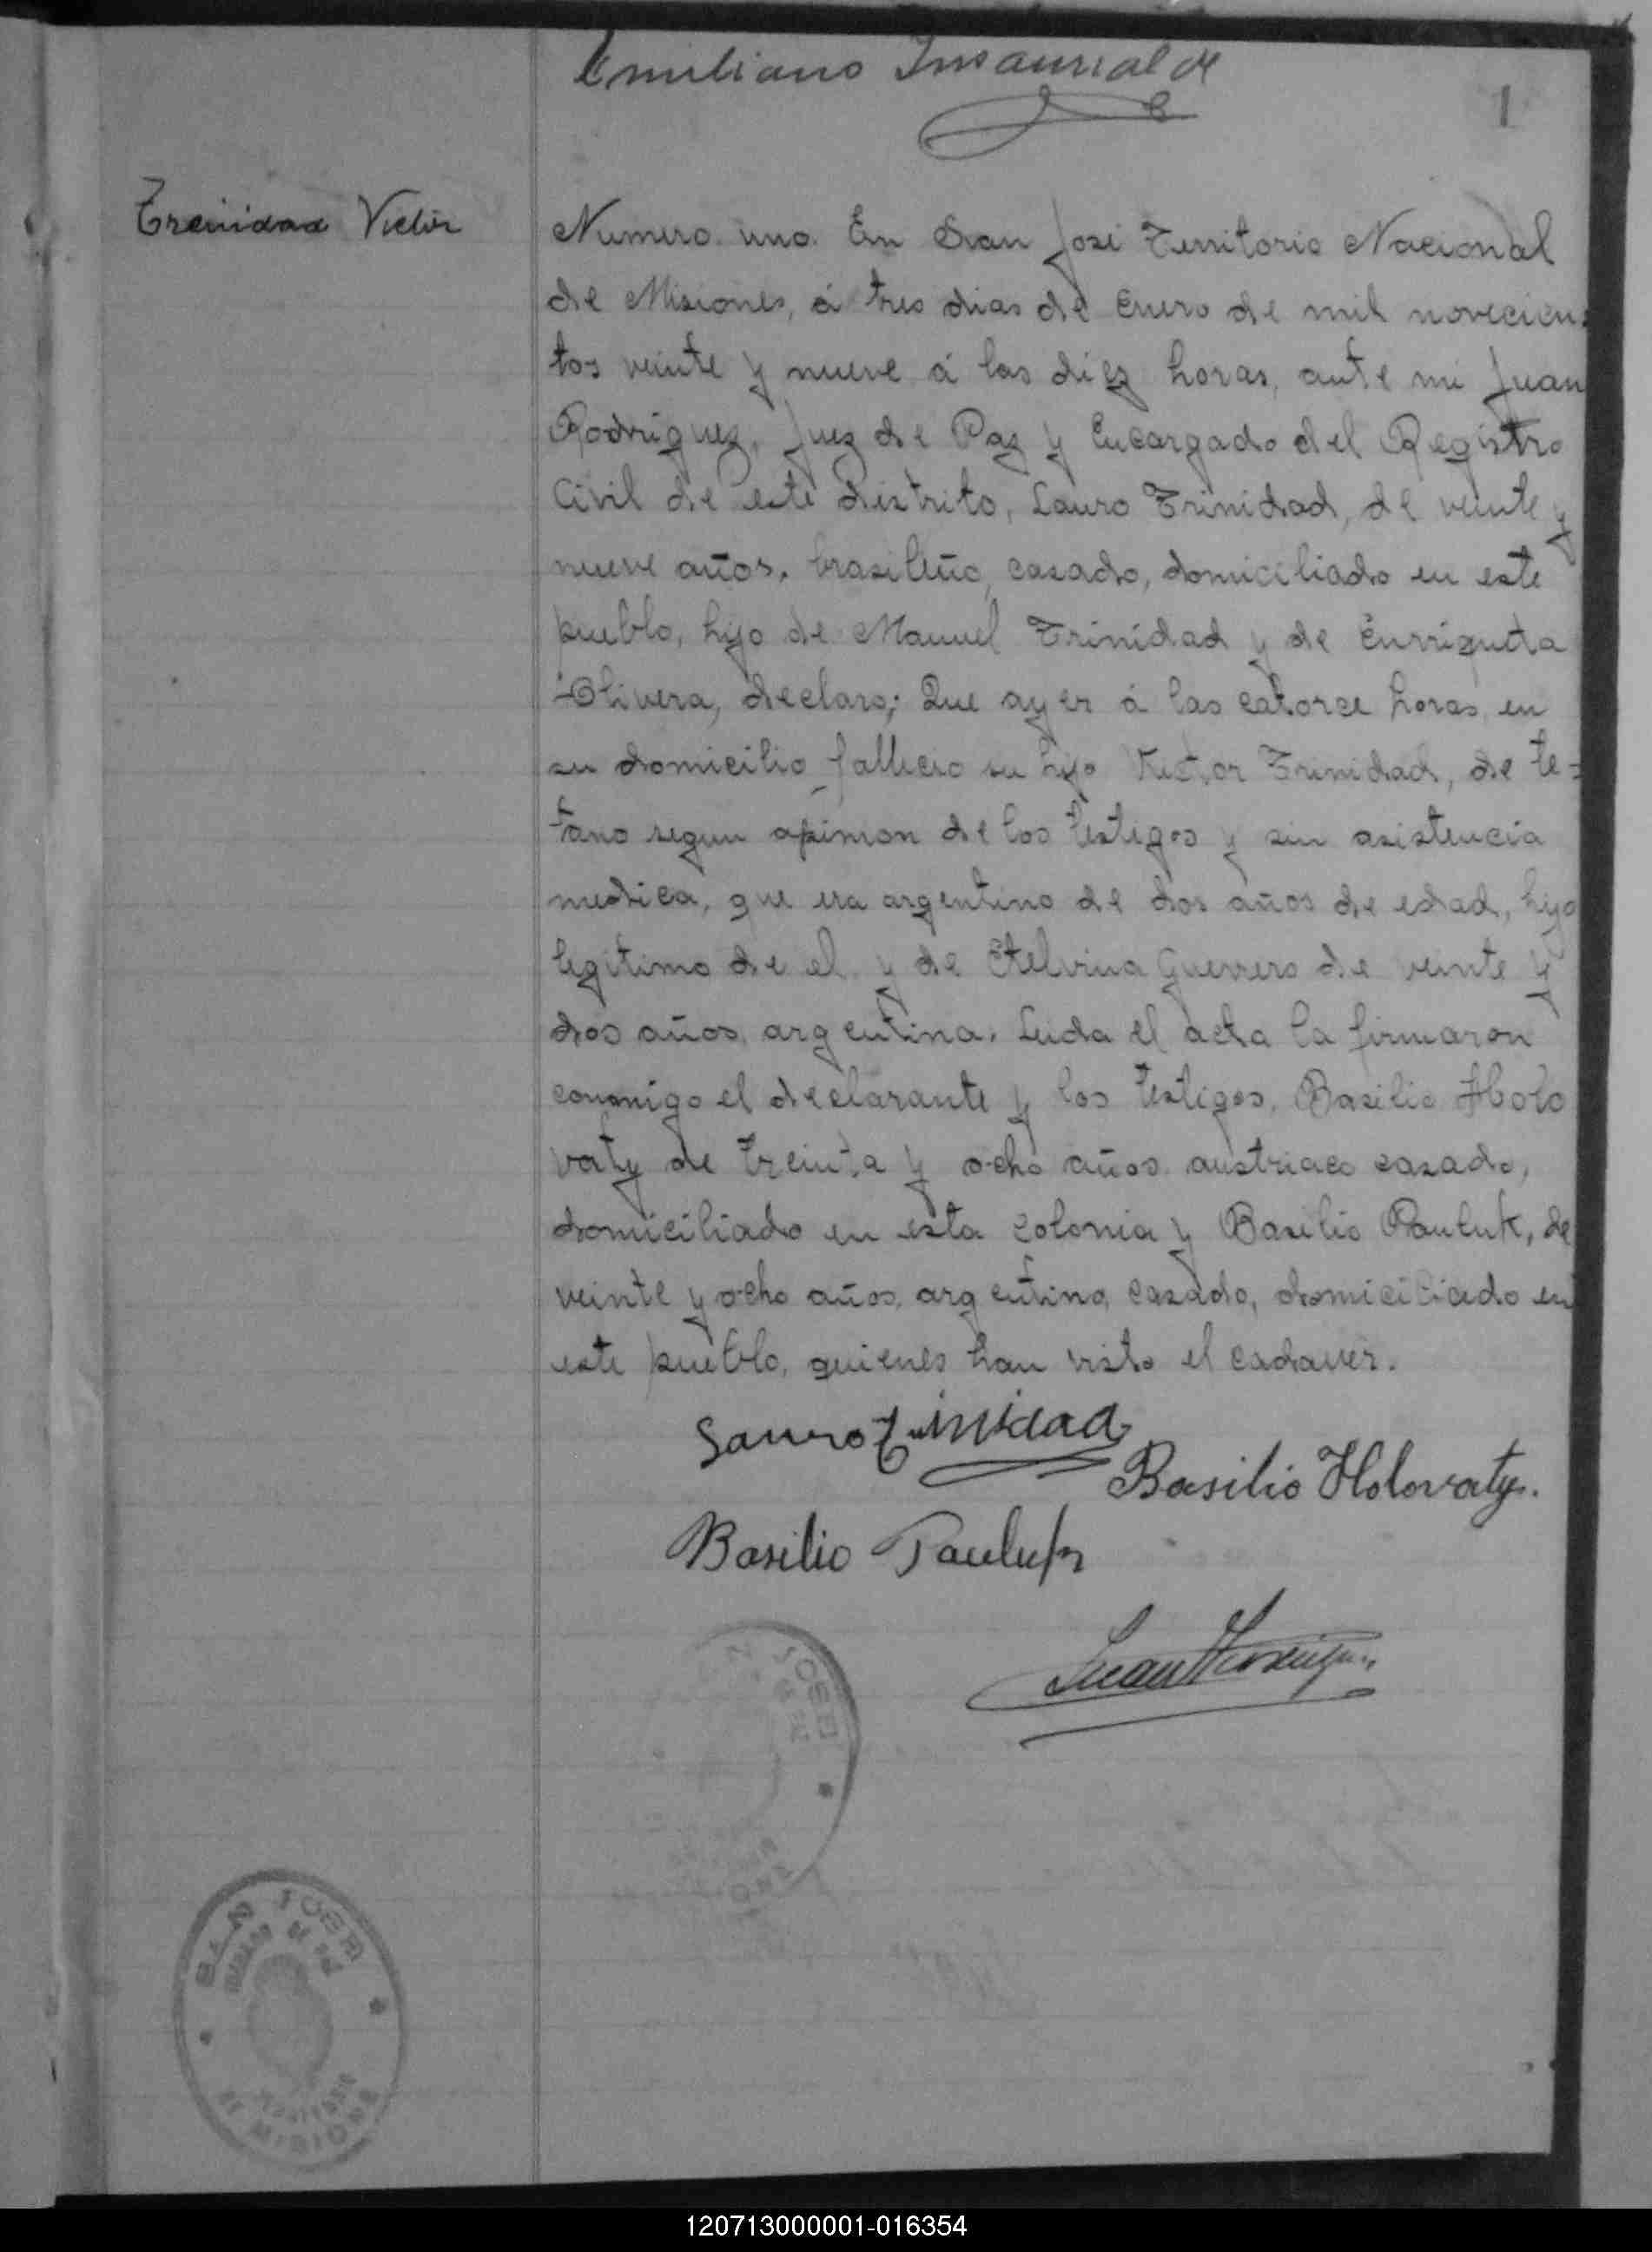 Emiliano Insaurralde
1
Treinidad Victor
Numero uno. En San José Territorio Nacional
de Misiones, á tres dias de Enero de mil novecien-
tos veinte y nueve á las diez horas, ante mi Juan
Rodriguez, Juez de Paz y Encargado del Registro
Civil de este distrito, Lauro Trinidad, de veinte y
nueve años, brasileño, casado, domiciliado en este
pueblo, hijo de Manuel Trinidad y de Enrriqueta
Olivera, declaro; Que ayer á las catorce horas, en
su domicilio fallecio su hijo Victor Trinidad, de te-
tano segun opinion de los testigos y sin asistencia
medica, que era argentino de dos años de edad, hijo
legitimo de el y de Etelvina Guerrero de veinte y
dos años, argentina. Leida el acta la firmaron
conmigo el declarante y los testigos, Basilio Holo
vaty de treinta y ocho años austriaco casado,
domiciliado en esta colonia y Basilio Pauluk, de
veinte y ocho años, argentino, casado, domiciliado en
este pueblo, quienes han visto el cadaver.
Lauro Trinidad
Basilio Holovaty.
Basilio Pauluk
Juan Rodriguez
SAN JOSE
SAN JOSE
JUZGADO DE PAZ
DE MISIONES
120713000001-016354